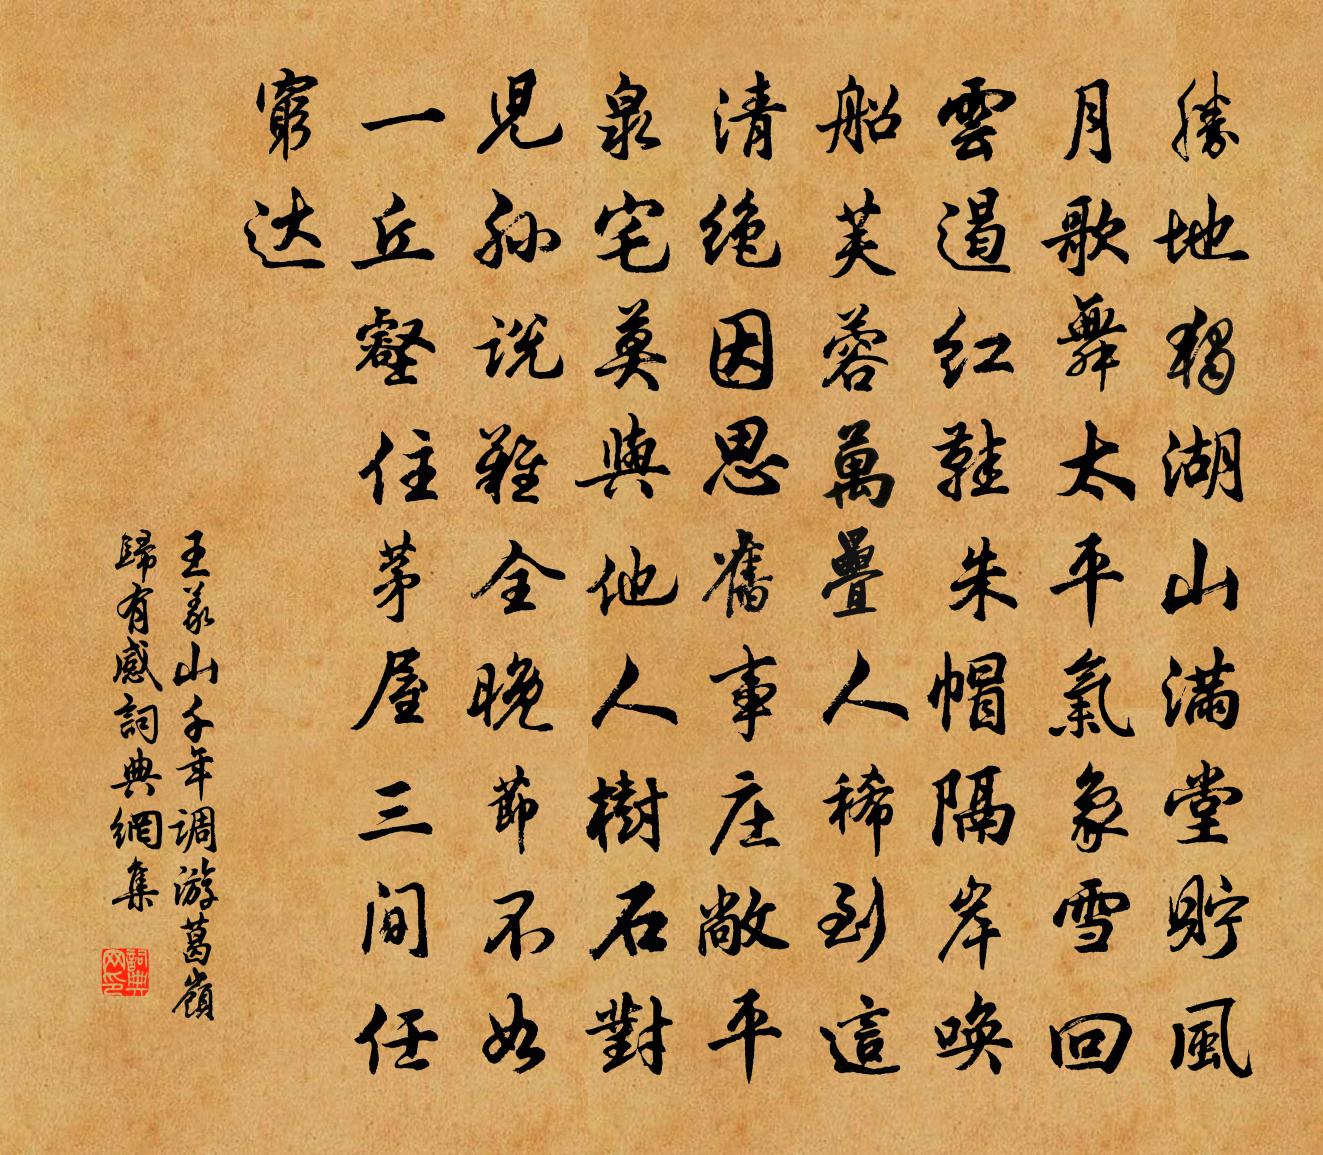 勝地獨湖山滿堂貯風
月歌舞太平氣象雪回
雲遏紅鞋朱帽隔岸喚
船芙蓉萬疊人稀到這
清絶因思舊事庄敞平
泉宅莫與他人樹石對
兒孫說難全晚節不如
一丘壑住茅屋三间任
窮达
王義山千年调游葛嶺
歸有感詞典網集
詞典网印